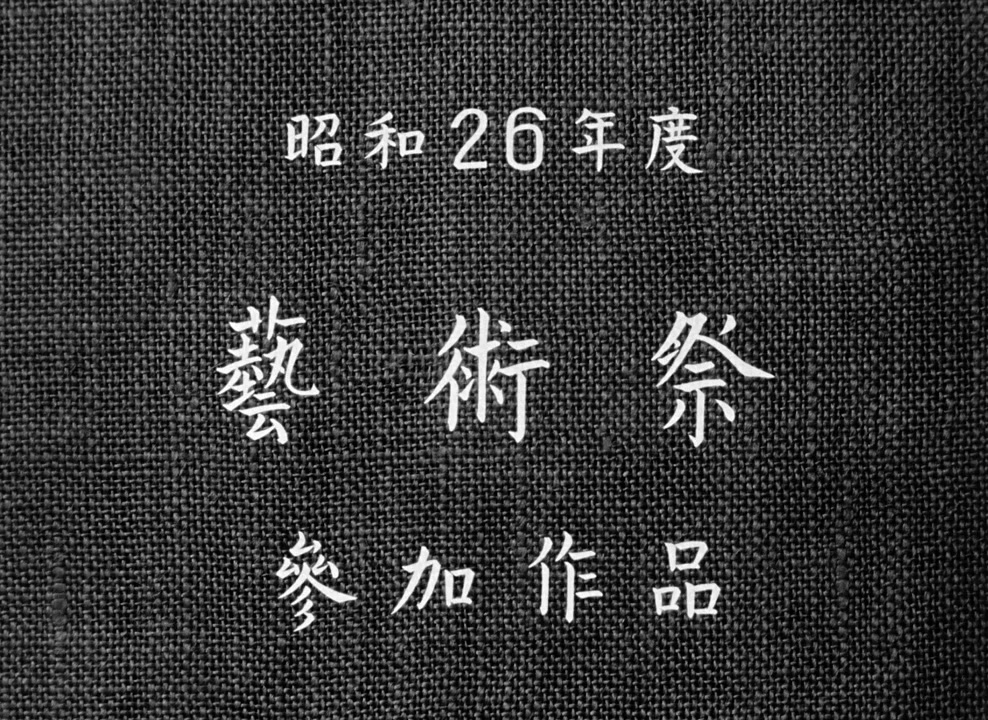 昭和26年度
藝術祭
參加作品